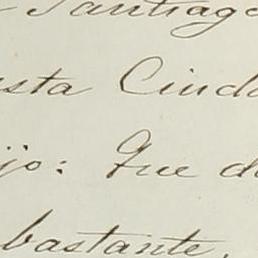 Santiago
sta Ciuda
ijo: Que d
bastante,